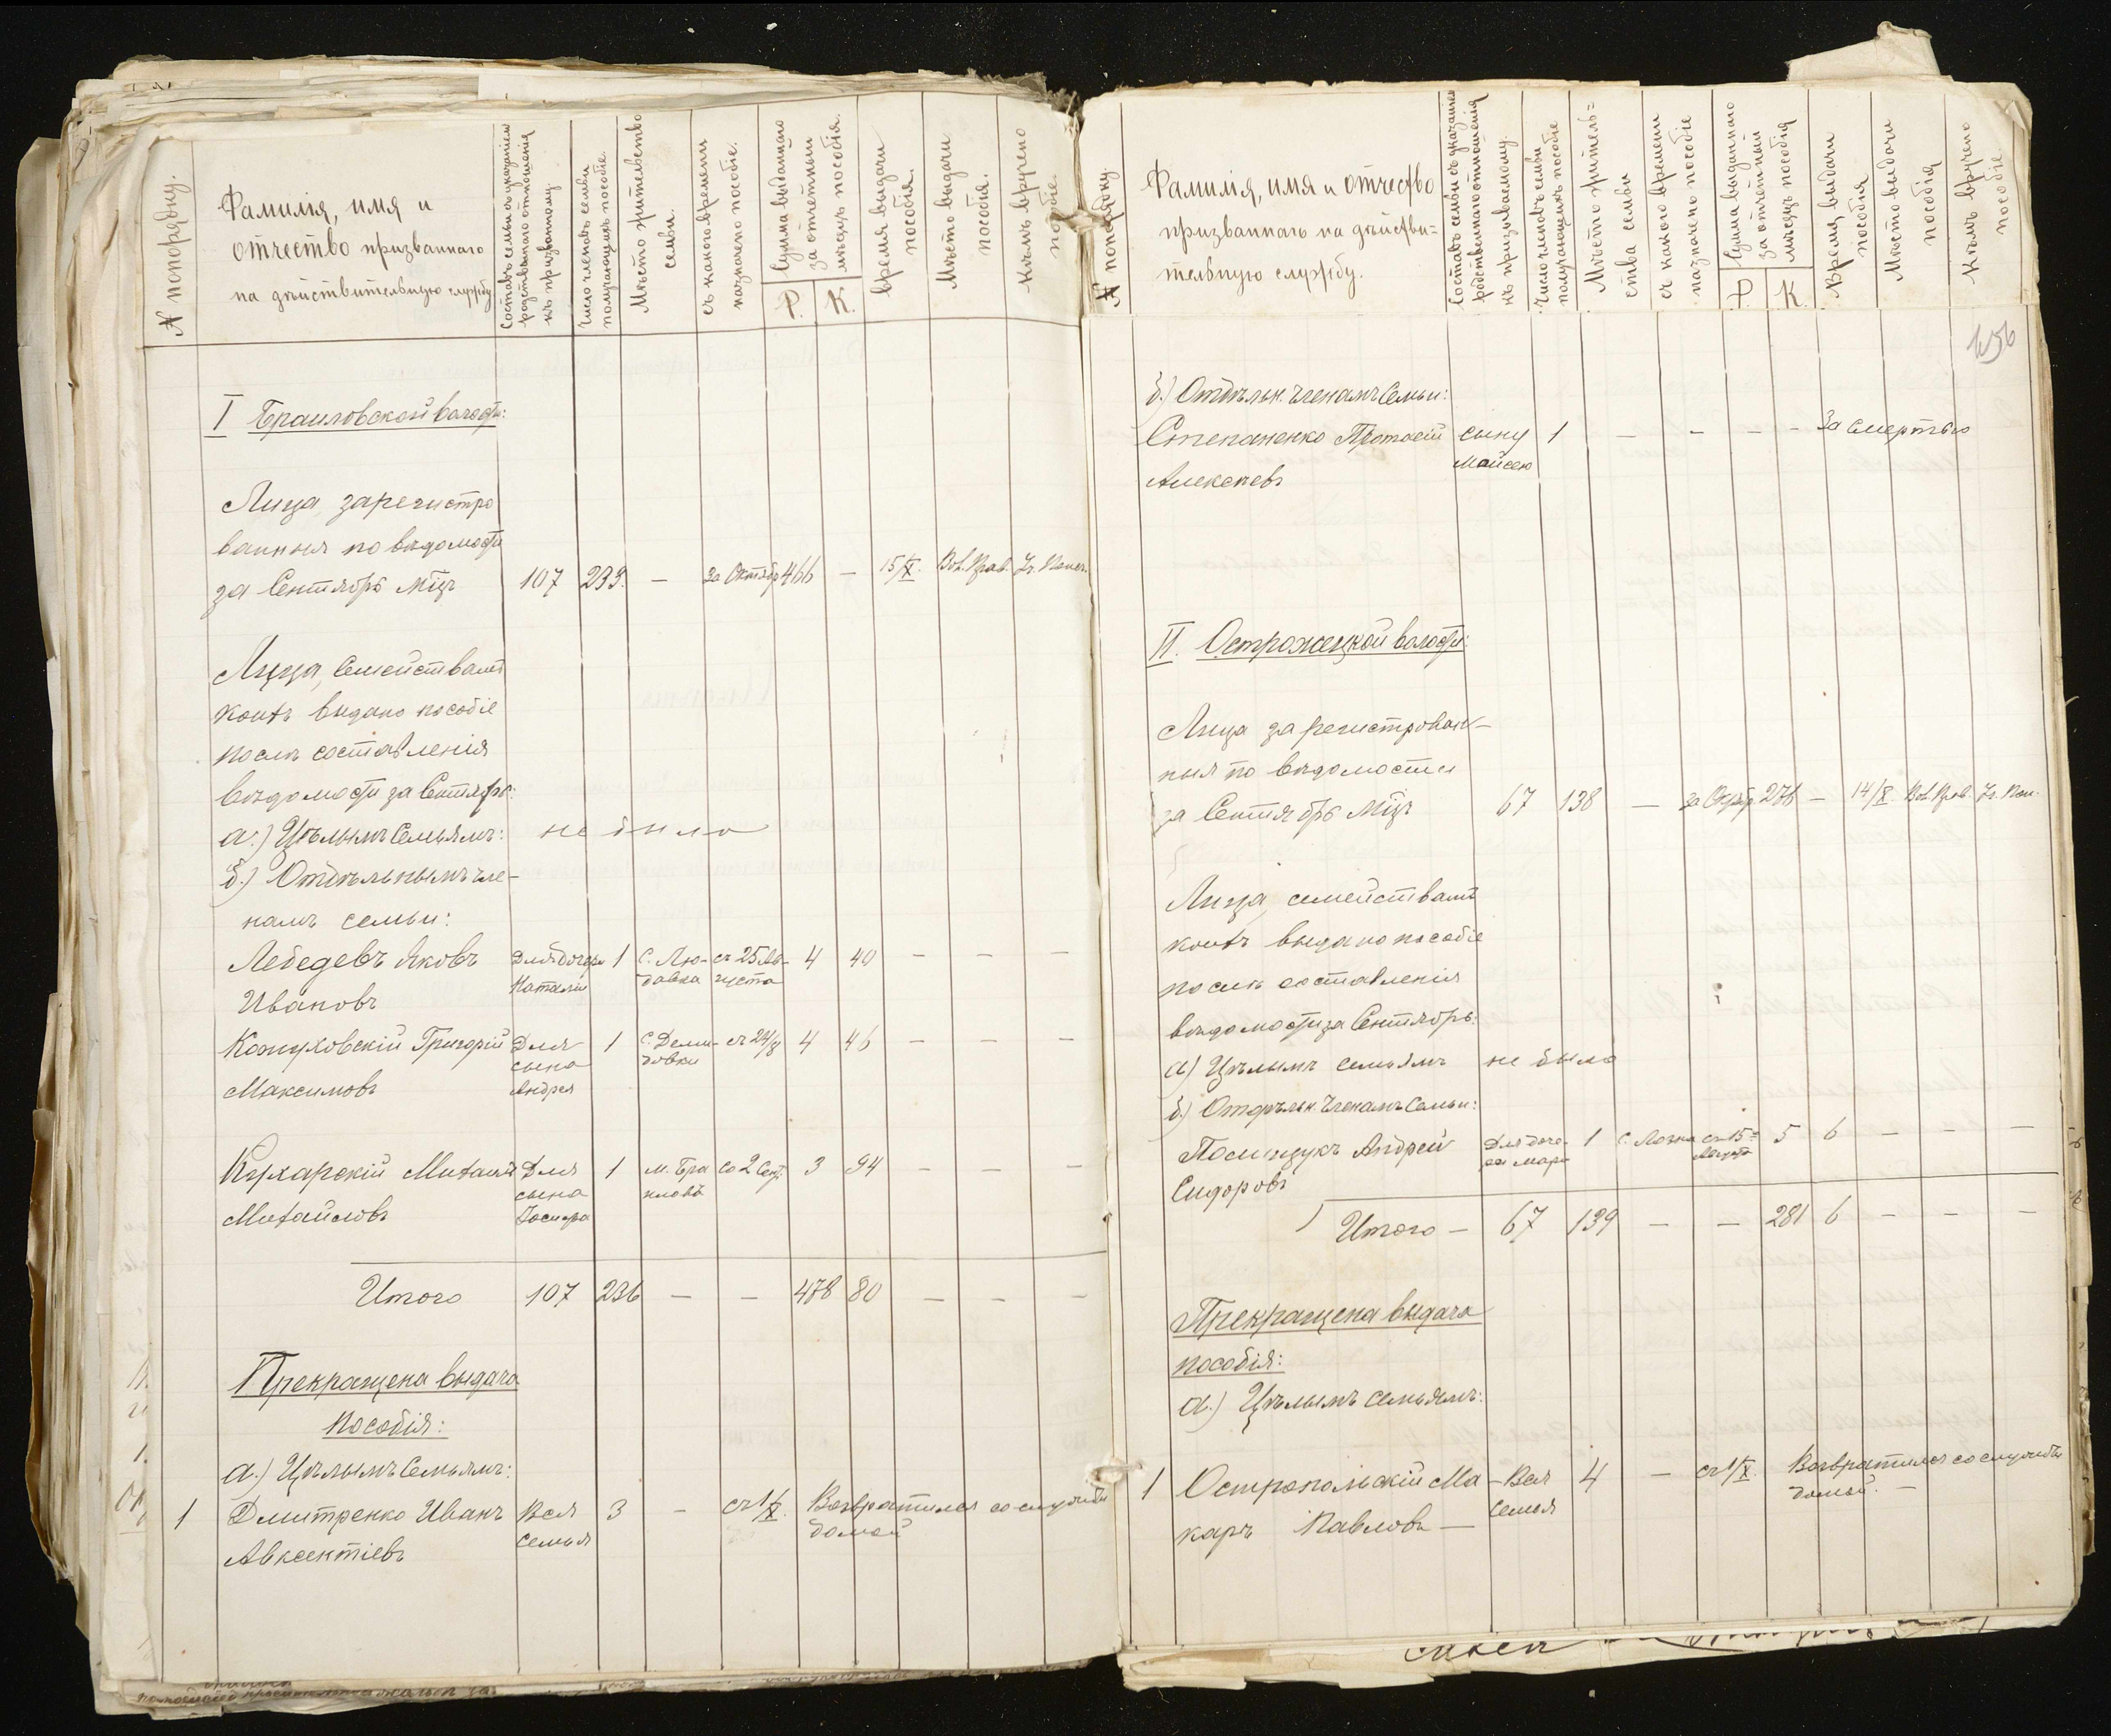 № по порядку.
Фамилія, имя и
отчество призваннаго
на дѣйствительную службу
Составъ семьи съ указаніем
родственнаго отношенія
къ призванному.
Число членовъ семьи
получающихъ пособіе.
Мѣсто жительство
семьи.
съ какого времени
назначено пособіе.
Сумма выданнаго
за отчетный
мѣсяцъ пособія.
Р. К.
Время выдачи
пособія.
Мѣсто выдачи
пособія.
Кѣмъ вручено
пособіе.
I Браиловской волости:
Лица, зарегистро
ванныя по вѣдомости
за Сентябрь мѣць 107 233. — за Октябр 466 — 15/X. Вол. Прав. Уч. Попеч.
Лица, Семействамъ
коихъ выдано пособіе
послѣ составленія
вѣдомости за Сентябрь:
а.) Цѣлымъ Семьямъ: не было
б.) Отдѣльнымъ чле-
намъ семьи:
Лебедевъ Яковъ Для дочери 1 С. Лю- съ 25 Ав- 4 40 — — —
Ивановъ Наталіи давка густа
Кожуховскій Григорій Для 1 С. Деми- съ 24/8 4 46 — — —
сына довки
Максимовъ Андрея
Кухарскій Михаилъ Для 1 м. Бра со 2 Сент. 3 94 — — —
сына иловъ
Михайловъ Іосифа
Итого 107 236 — — 478 80 — — —
Прекращена выдача
пособія:
а.) Цѣлымъ Семьямъ:
1 Дмитренко Иванъ Вся 3 — съ 1/X. Возвратился со службы
Авксентіевъ семья домой
№ по порядку.
Фамилія, имя и отчество
призваннаго на дѣйстви=
тельную службу.
Составъ семьи съ указаніем
родственнаго отношенія
къ призываемому.
Число членовъ семьи
получающихъ пособіе
Мѣсто житель=
ства семьи
съ какого времени
назначено пособіе
Сумма выданнаго
за отчетный
мѣсяцъ пособія
Р. К.
Время выдачи
пособія
Мѣсто выдачи
пособія
Кѣмъ вручено
пособіе
156
б.) Отдѣльн. членамъ Семьи:
Степаненко Протасій сыну 1 — — — — За смертью
Моисею
Алексѣевъ
II. Острожецкой волости:
Лица зарегистрован-
ныя по вѣдомости
за Сентябрь мѣць 67 138 — за Октябр. 276 — 14/X Вол. Прав. Уч. Поп.
Лица, семействамъ
коихъ выдано пособіе
послѣ составленія
вѣдомости за Сентябрь:
а) Цѣлымъ семьямъ не было
б.) Отдѣльн. Членамъ Семьи:
Полищукъ Андрей Для доче- 1 с. Лозна съ 15= 5 6 — — —
ри Мари Августа
Сидоровъ
Итого — 67 139 — — 281 6 — — —
Прекращена выдача
пособія:
а.) Цѣлымъ семьямъ:
1 Остропольскій Ма — Вся 4 — съ 1/X. Возвратился со службы
каръ Павловъ — семья домой. —